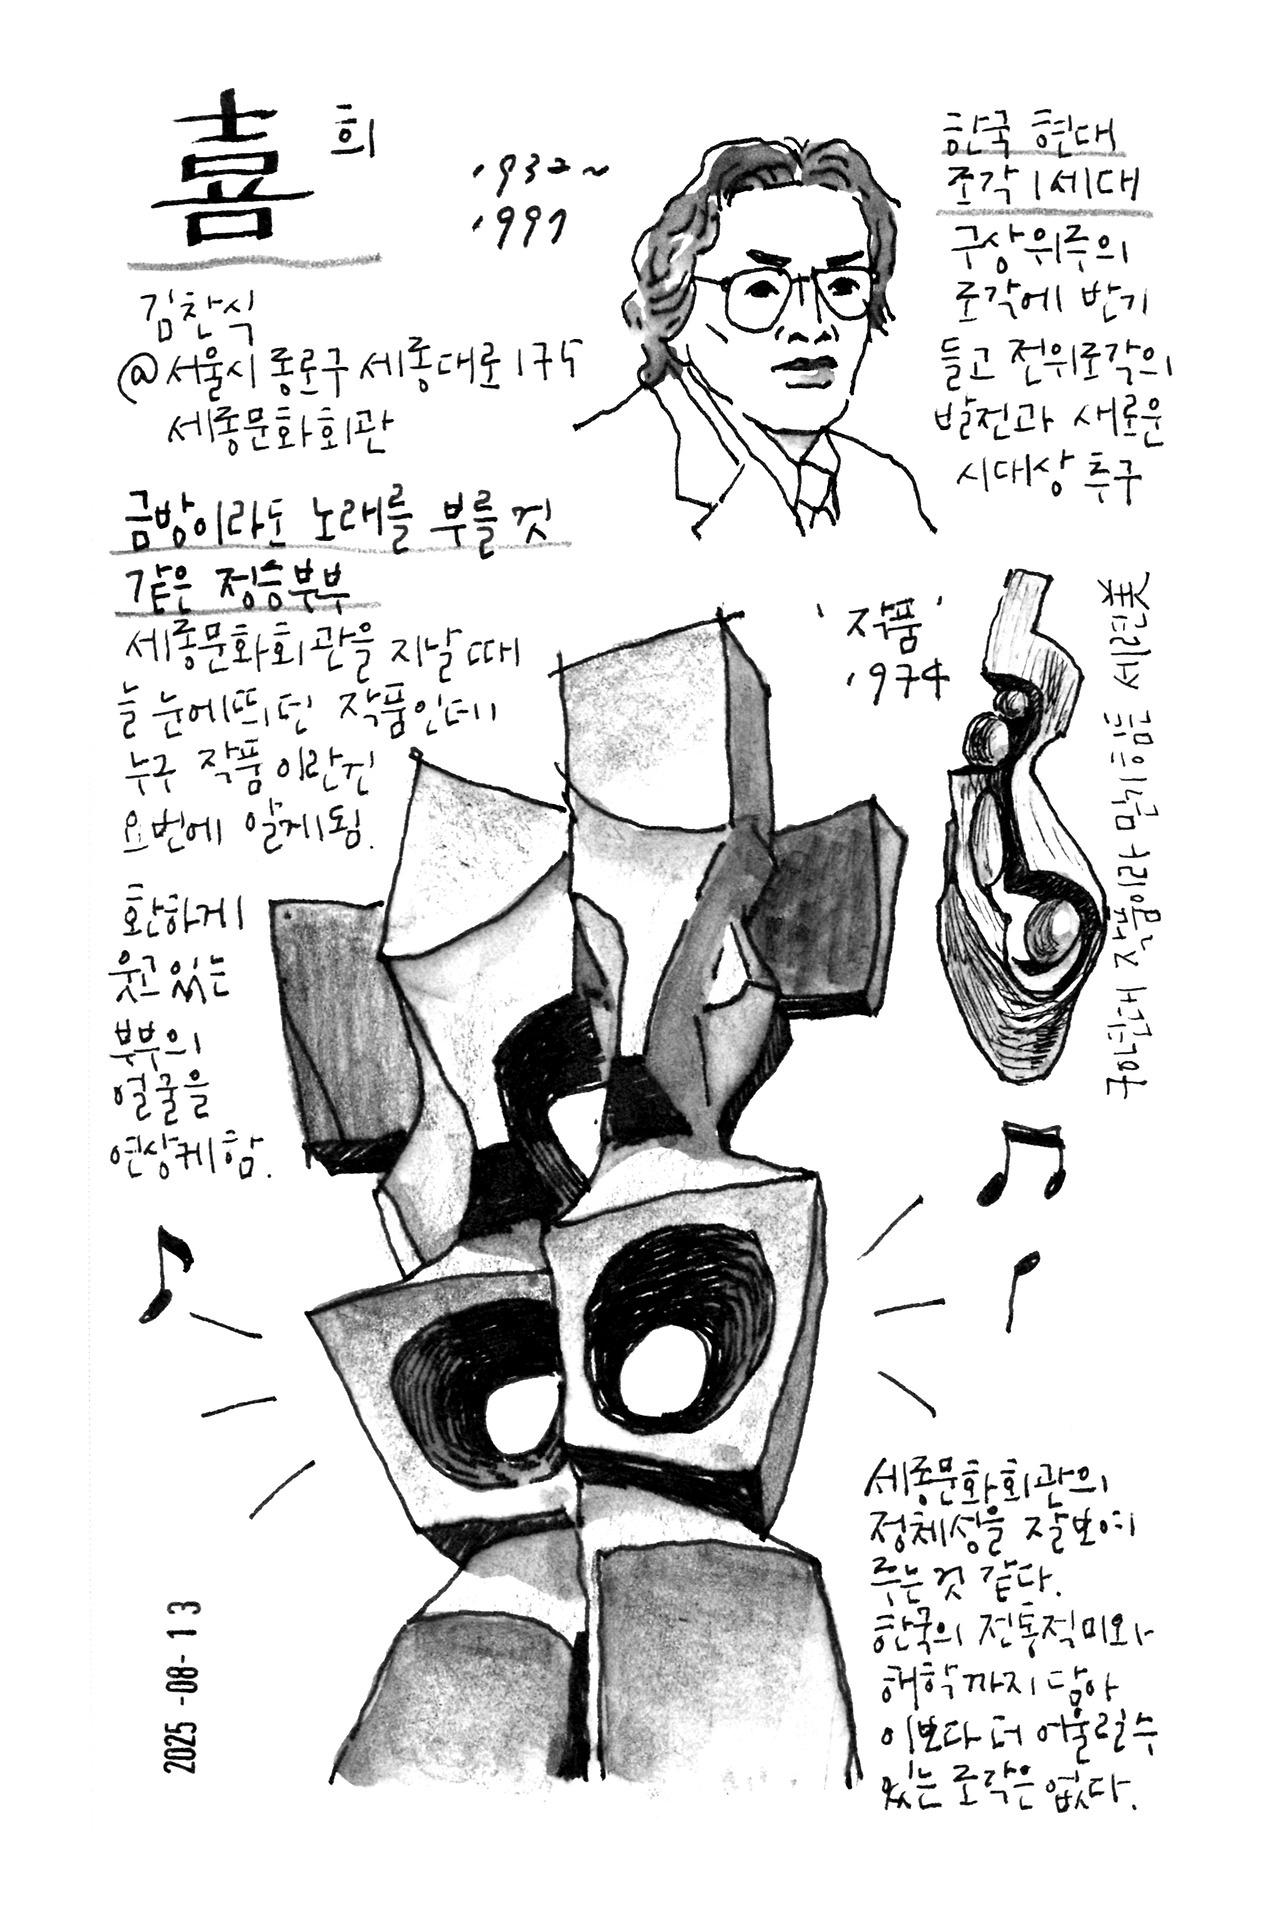 喜 희
1932~
1997
김찬식
@서울시 종로구 세종대로 175
세종문화회관
한국 현대
조각 1세대
구상위주의
조각에 반기
들고 전위조각의
발전과 새로운
시대상 추구
금방이라도 노래를 부를 것
같은 정승부부
세종문화회관을 지날 때
늘 눈에 띄던 작품인데
누구 작품이란건
요번에 알게됨.
'작품'
1974
환하게
웃고 있는
부부의
얼굴을
연상케함.
세종문화회관의
정체성을 잘 보여
주는 것 같다.
한국의 전통적 미와
해학까지 담아
이보다 더 어울릴 수
있는 조각은 없다.
2025-08-13